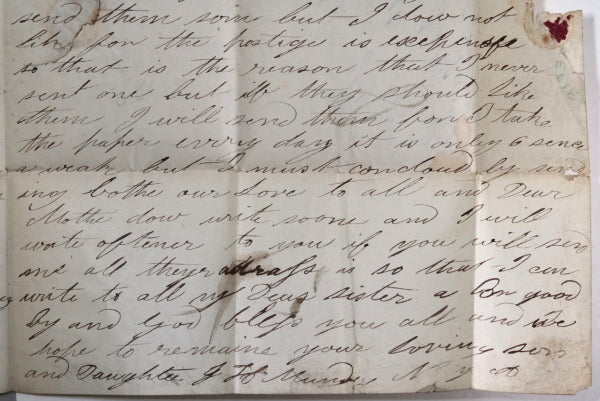 send them som but I dow not
like for the postige is
so that is the reason that I never
sent one but if they should like
them I will send them for I take
the paper evrry day it is only 6 sence
a weak but I must concloud by send
ing bothe our Love to all and Dear
Mothe dow write soone and I will
write oftener to you if you will send
me all they adrass is so that I can
write to all my Dear sister a good
by and God bless you all and we
hope to remaine your loving son
and Daughter J H Munday N Y